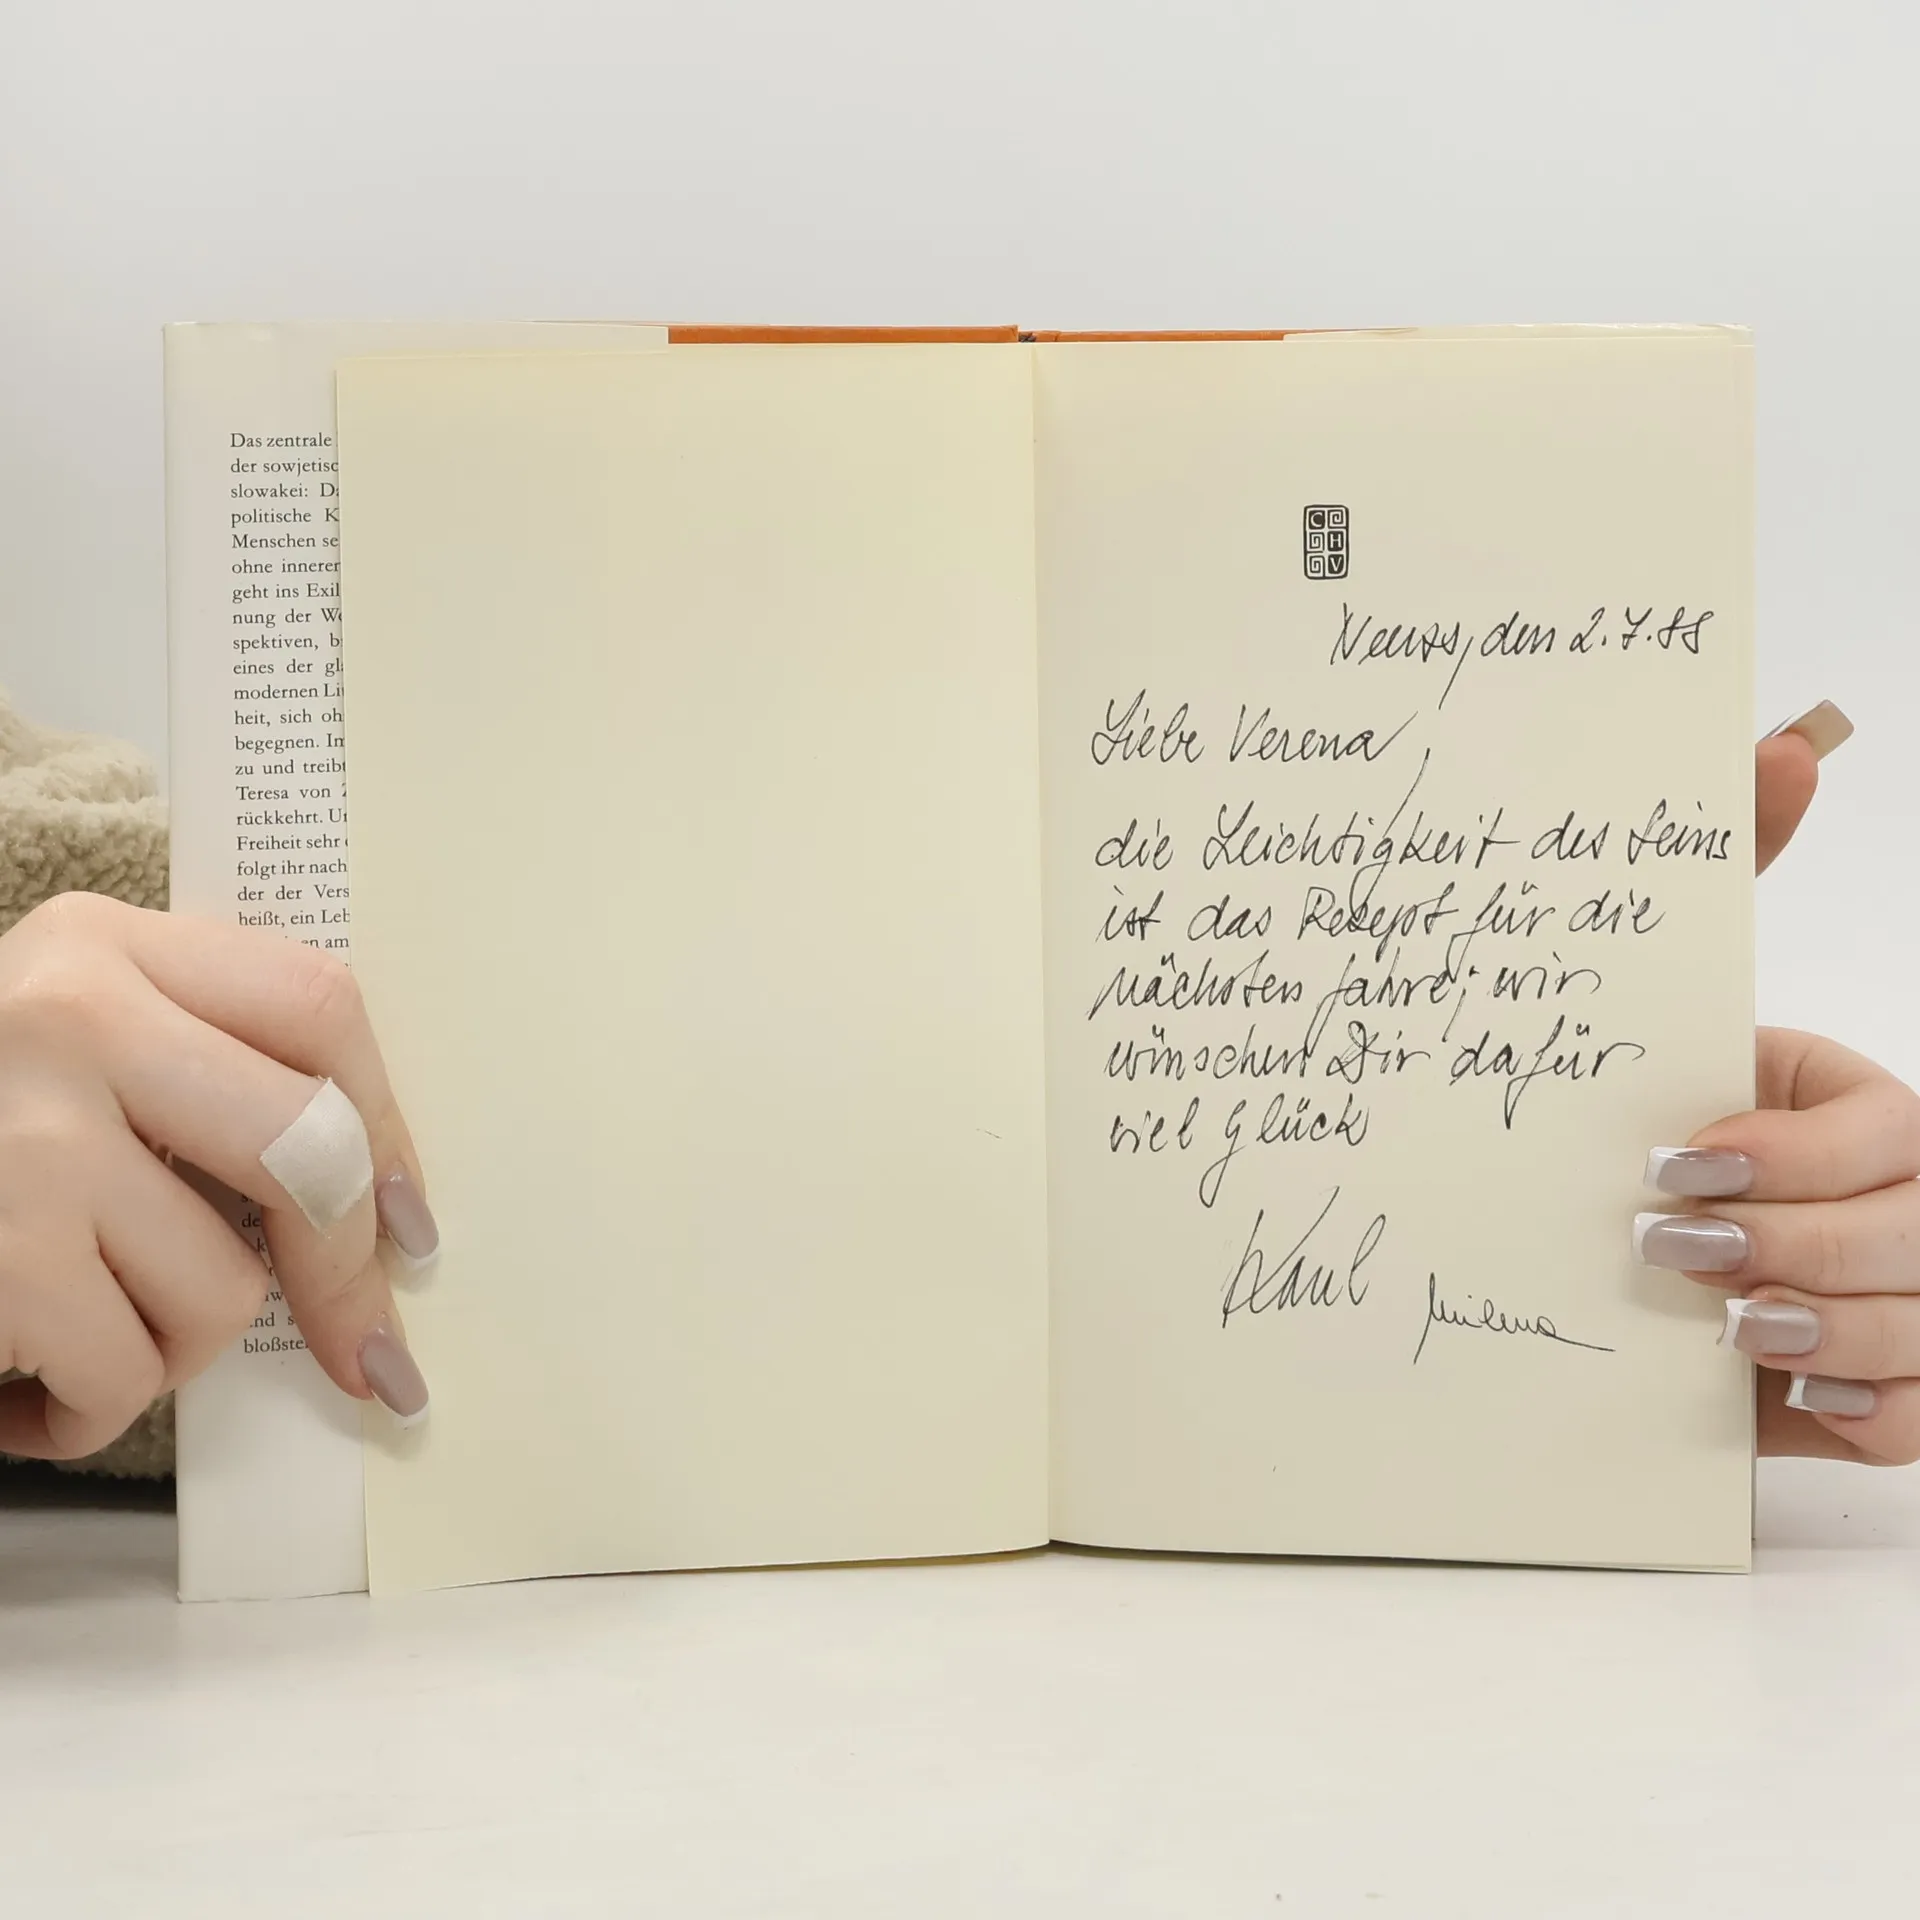 Das zentrale
der sowjetisc
slowakei: Da
politische K
Menschen se
ohne innerer
geht ins Exil
nung der We
spektiven, b
eines der gl
modernen Li
heit, sich oh
begegnen. Im
zu und treibt
Teresa von Z
rückkehrt. Un
Freiheit sehr
folgt ihr nach
der der Vers
heißt, ein Leb
en am
de
nd s
bloßste
C
H
V
Neuss, den 2.7.88
Liebe Verena,
die Leichtigkeit des Seins
ist das Rezept für die
nächsten Jahre; wir
wünschen Dir dafür
viel Glück
Karl Milena